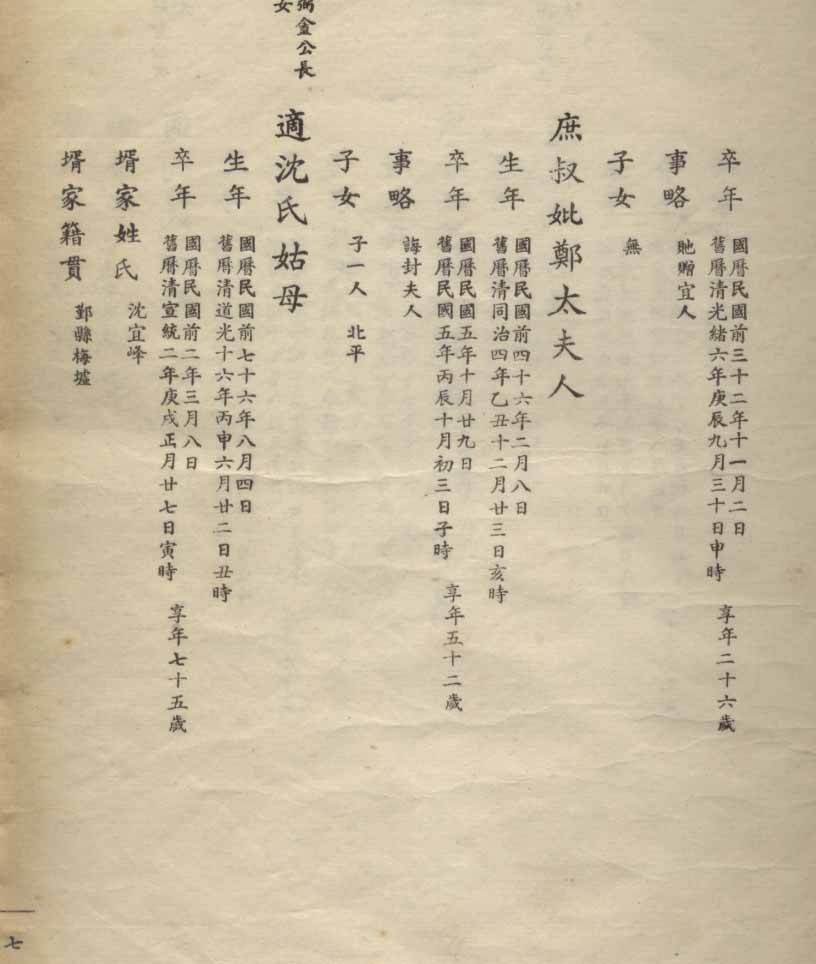 卒年
國曆民國前三十二年十一月二日
舊曆清光緒六年庚辰九月三十日申時　享年二十六歲
事略　貤贈宜人
子女　無
庶叔妣鄭太夫人
生年
國曆民國前四十六年二月八日
舊曆清同治四年乙丑十二月廿三日亥時
卒年
國曆民國五年十月廿九日
舊曆民國五年丙辰十月初三日子時　享年五十二歲
事略　誥封夫人
子女　子一人　北平
弼金公長
女
適沈氏姑母
生年
國曆民國前七十六年八月四日
舊曆清道光十六年丙申六月廿二日丑時
卒年
國曆民國前二年三月八日
舊曆清宣統二年庚戌正月廿七日寅時　享年七十五歲
壻家姓氏　沈宜峰
壻家籍貫　鄞縣梅墟
七